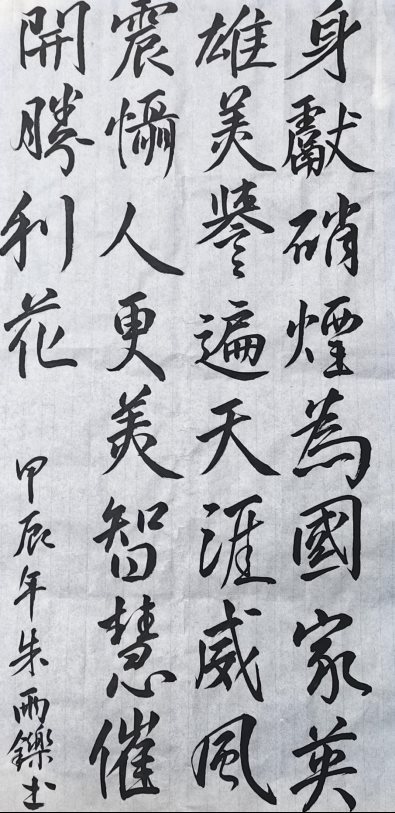 身獻硝煙為國家英
雄美譽遍天涯威風
震懾人更美智慧催
開勝利花
甲辰年朱雨鑠书